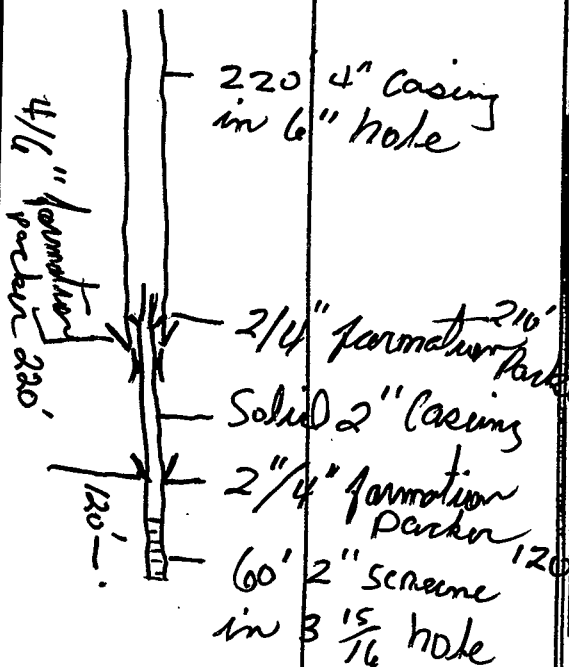 220 4" Casing
in 6" hole
4/6" formation
packer 220'
2/4" formation 210'
Pack
Solid 2" Casing
2"/4" formation
packer 120
120'
60' 2" screene
in 3 15/16 hole